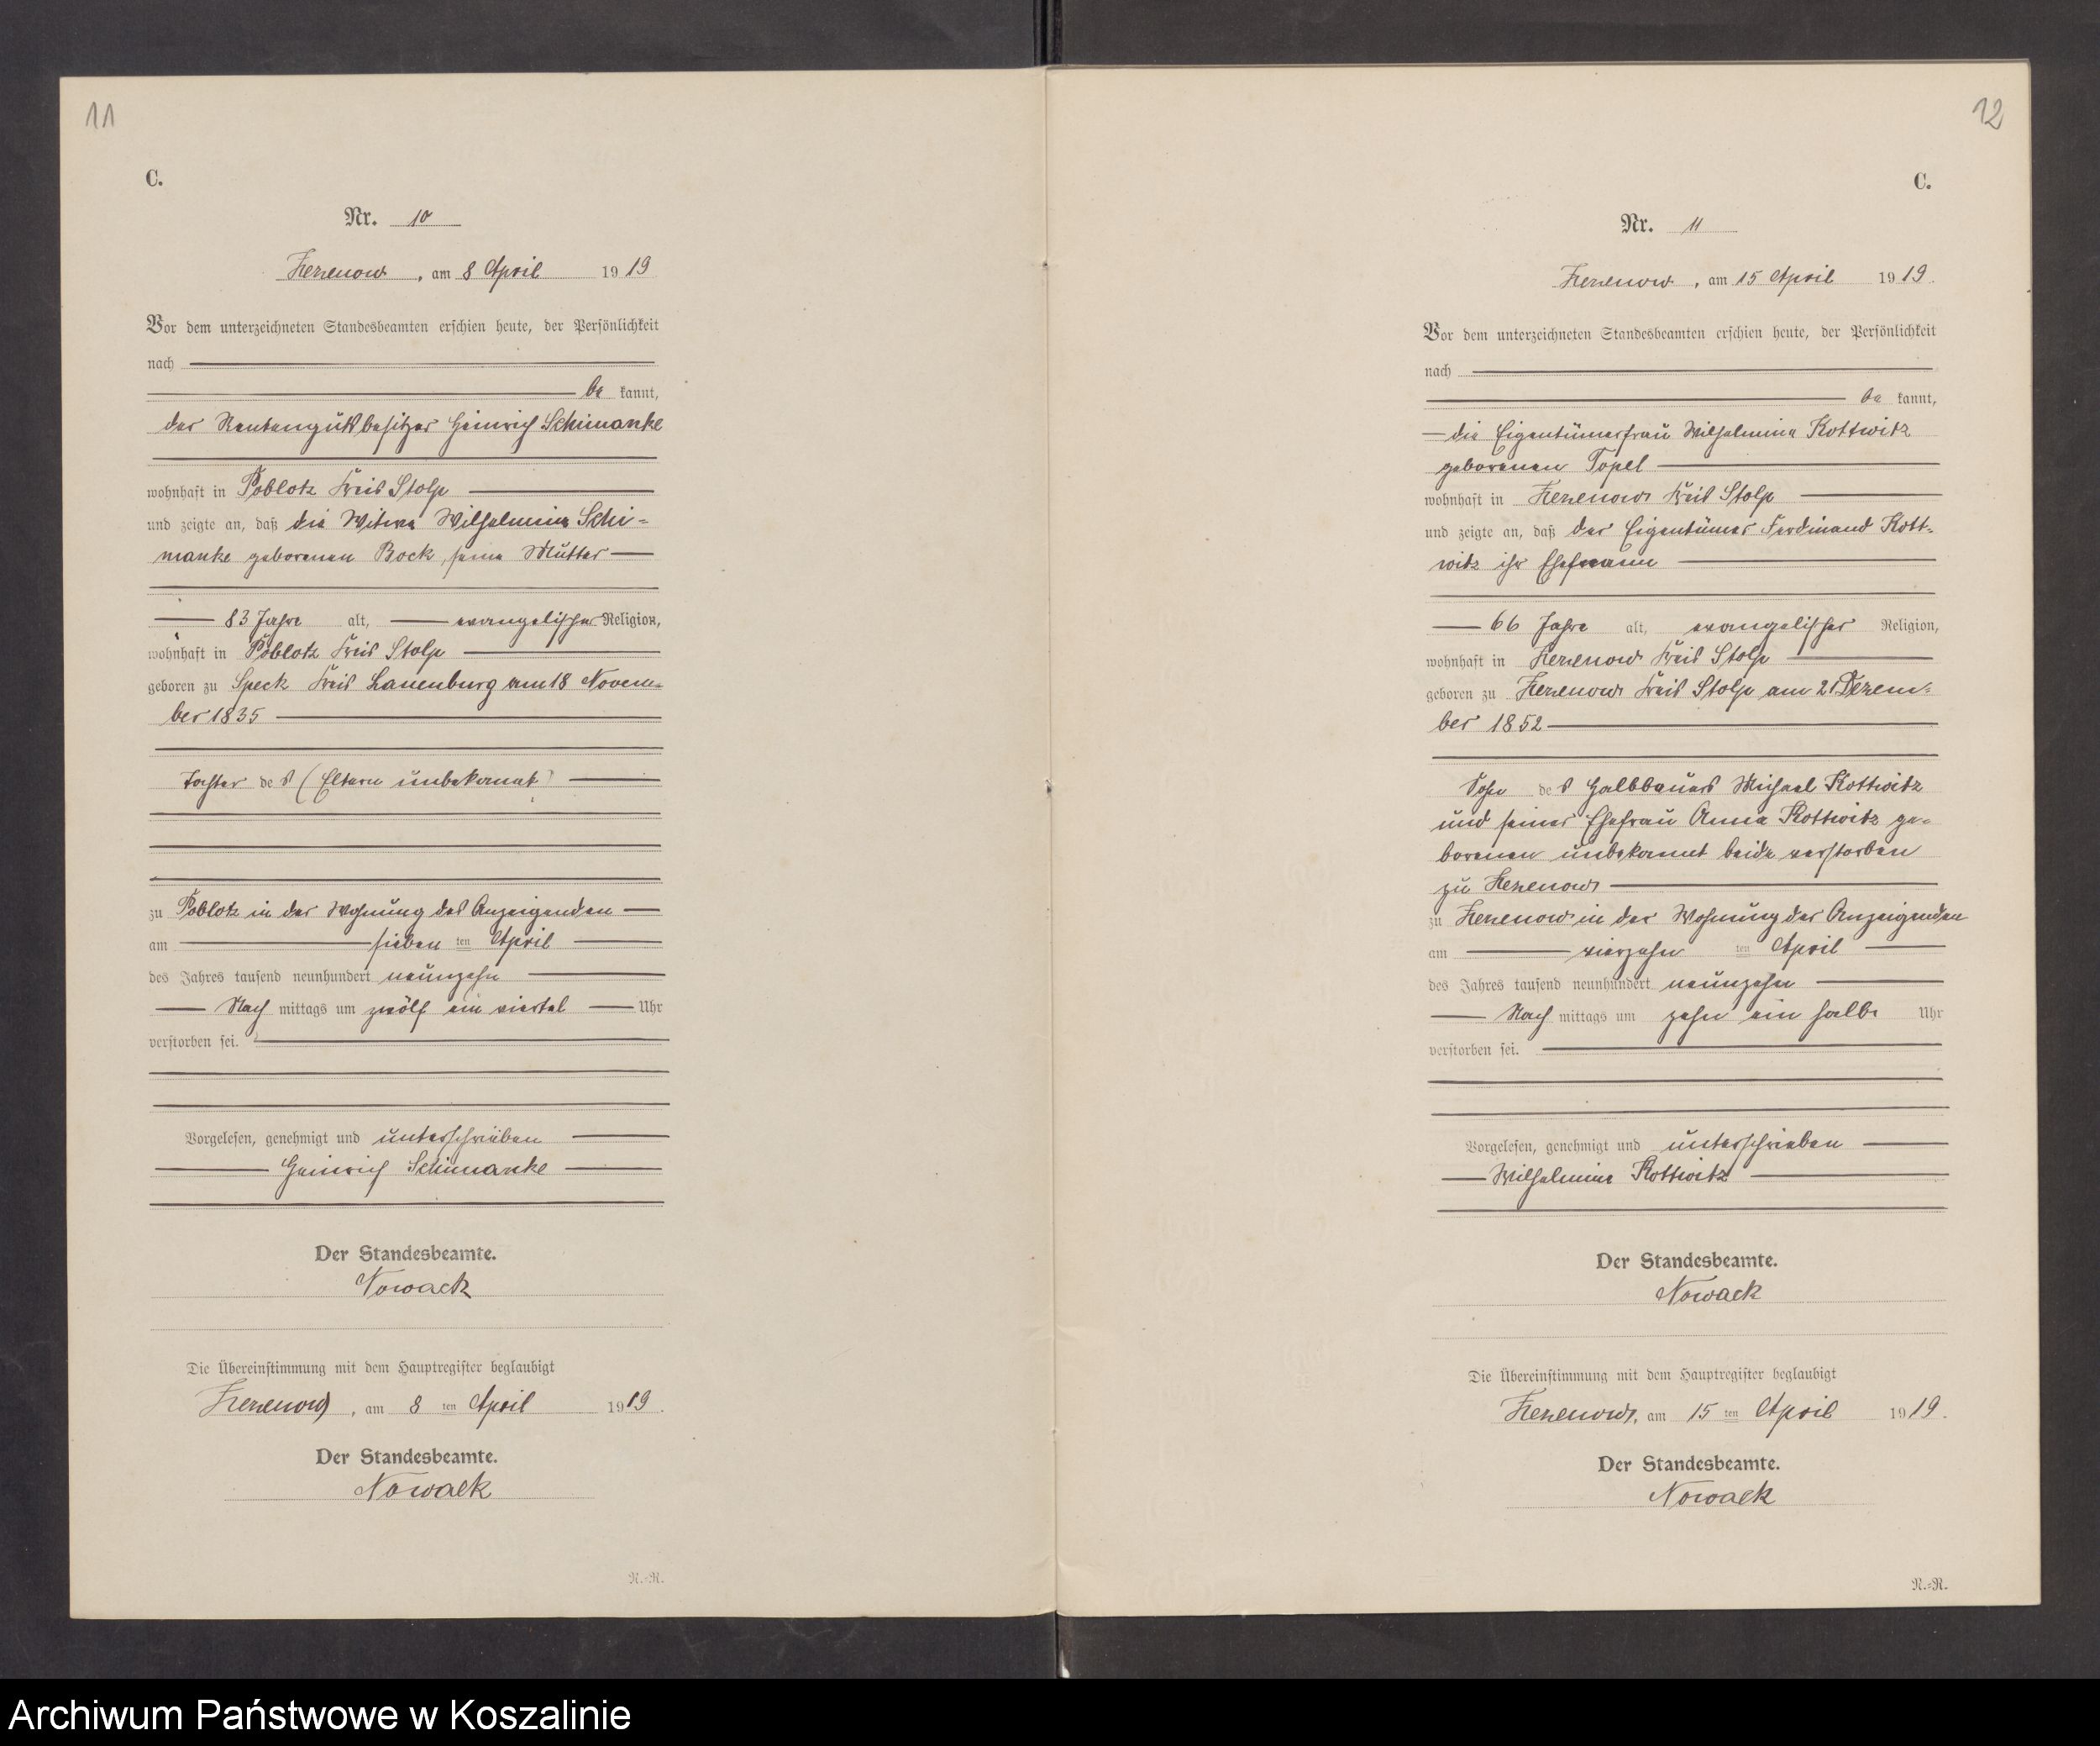 11
C.
Nr. 10
Zezenow, am 8 April 1919
Vor dem unterzeichneten Standesbeamten erschien heute, der Persönlichkeit
nach
be kannt,
der Rentengutsbesitzer Heinrich Schimanke
wohnhaft in Poblotz Kreis Stolp
und zeigte an, daß die Witwe Wilhelmine Schi-
manke geborenen Bock, seine Mutter
83 Jahre alt, evangelischer Religion,
wohnhaft in Poblotz Kreis Stolp
geboren zu Speck Kreis Lauenburg am 18 Novem-
ber 1835
Tochter des (Eltern unbekannt)
zu Poblotz in der Wohnung des Anzeigenden
am sieben ten April
des Jahres tausend neunhundert neunzehn
Nach mittags um zwölf ein viertel Uhr
verstorben sei.
Vorgelesen, genehmigt und unterschrieben
Heinrich Schimanke
Der Standesbeamte.
Nowack
Die Übereinstimmung mit dem Hauptregister beglaubigt
Zezenow, am 8 ten April 1919.
Der Standesbeamte.
Nowack
N.-R.
12
C.
Nr. 11
Zezenow, am 15 April 1919.
Vor dem unterzeichneten Standesbeamten erschien heute, der Persönlichkeit
nach
be kannt,
die Eigentümerfrau Wilhelmine Kottwitz
geborenen Topel
wohnhaft in Zezenow Kreis Stolp
und zeigte an, daß der Eigentümer Ferdinand Kott-
witz ihr Ehemann
66 Jahre alt, evangelischer Religion,
wohnhaft in Zezenow Kreis Stolp
geboren zu Zezenow Kreis Stolp am 21 Dezem-
ber 1852
Sohn des Halbbauers Michael Kottwitz
und seiner Ehefrau Anna Kottwitz ge-
borenen unbekannt beide verstorben
zu Zezenow
zu Zezenow in der Wohnung der Anzeigenden
am vierzehn ten April
des Jahres tausend neunhundert neunzehn
Nach mittags um zehn ein halb Uhr
verstorben sei.
Vorgelesen, genehmigt und unterschrieben
Wilhelmine Kottwitz
Der Standesbeamte.
Nowack
Die Übereinstimmung mit dem Hauptregister beglaubigt
Zezenow, am 15 ten April 1919.
Der Standesbeamte.
Nowack
N.-R.
Archiwum Państwowe w Koszalinie